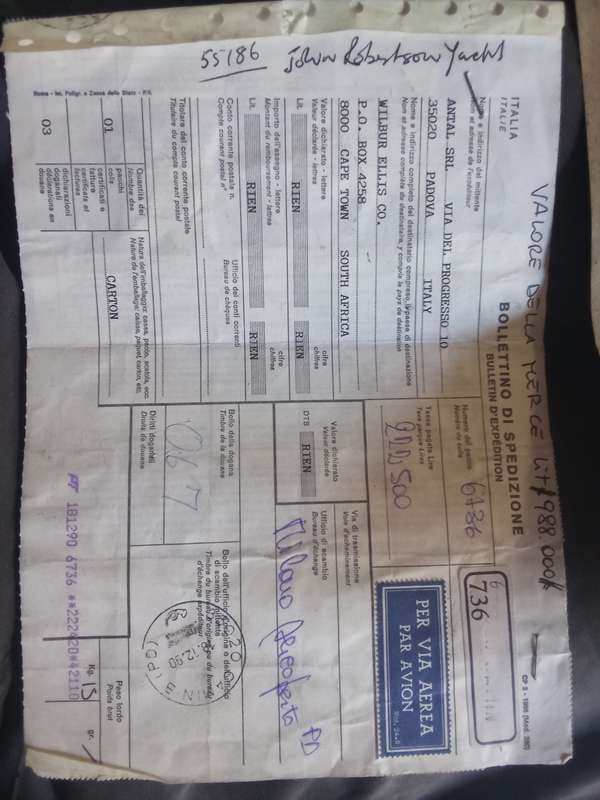 55186
John Robertson Yacht
VALORE DELLA MERCE Lit 988.000
ITALIA
ITALIE
BOLLETTINO DI SPEDIZIONE
BULLETIN D'EXPÉDITION
CP 2 - 1986 (Mod. 285)
Nome e indirizzo del mittente
Nom et adresse de l'expéditeur
ANTAL SRL VIA DEL PROGRESSO 10
35020 PADOVA ITALY
Numero del pacco
Numéro du colis
6736
736
Nome e indirizzo completo del destinatario compreso il paese di destinazione
Nom et adresse complète du destinataire, y compris le pays de destination
WILBUR ELLIS CO.
P.O. BOX 4258
8000 CAPE TOWN SOUTH AFRICA
Tassa pagata Lire
Taxe perçue Lires
500
PER VIA AEREA
PAR AVION
Valore dichiarato - lettere
Valeur déclarée - lettres
cifre
chiffres
Lit. RIEN RIEN
Valore dichiarato
Valeur déclarée
DTS RIEN
Via di trasmissione
Voie d'acheminement
Ufficio di scambio
Bureau d'échange
Milano Aeroporto PD
Importo dell'assegno - lettere
Montant du remboursement - lettres
cifre
chiffres
Lit. RIEN RIEN
Conto corrente postale n.
Compte courant postal n°
Ufficio dei conti correnti
Bureau de chèques
Titolare del conto corrente postale
Titulaire du compte courant postal
Bollo della dogana
Timbre de la douane
067
Bollo dell'ufficio d'origine o dell'ufficio di scambio mittente
Timbre du bureau d'origine ou du bureau d'échange expéditeur
Quantità dei
Nombre des
pacchi
colis
01
certificati e fatture
certificats et factures
dichiarazioni doganali
déclarations en douane
03
Natura dell'imballaggio: cassa, pacco, scatola, ecc.
Nature de l'emballage: caisse, paquet, carton, etc.
CARTON
Diritti doganali
Droits de douane
Peso lordo
Poids brut
Kg. 15 gr.
PT 181298 6736 **222420*42110
Roma - Ist. Poligr. e Zecca dello Stato - P.V.